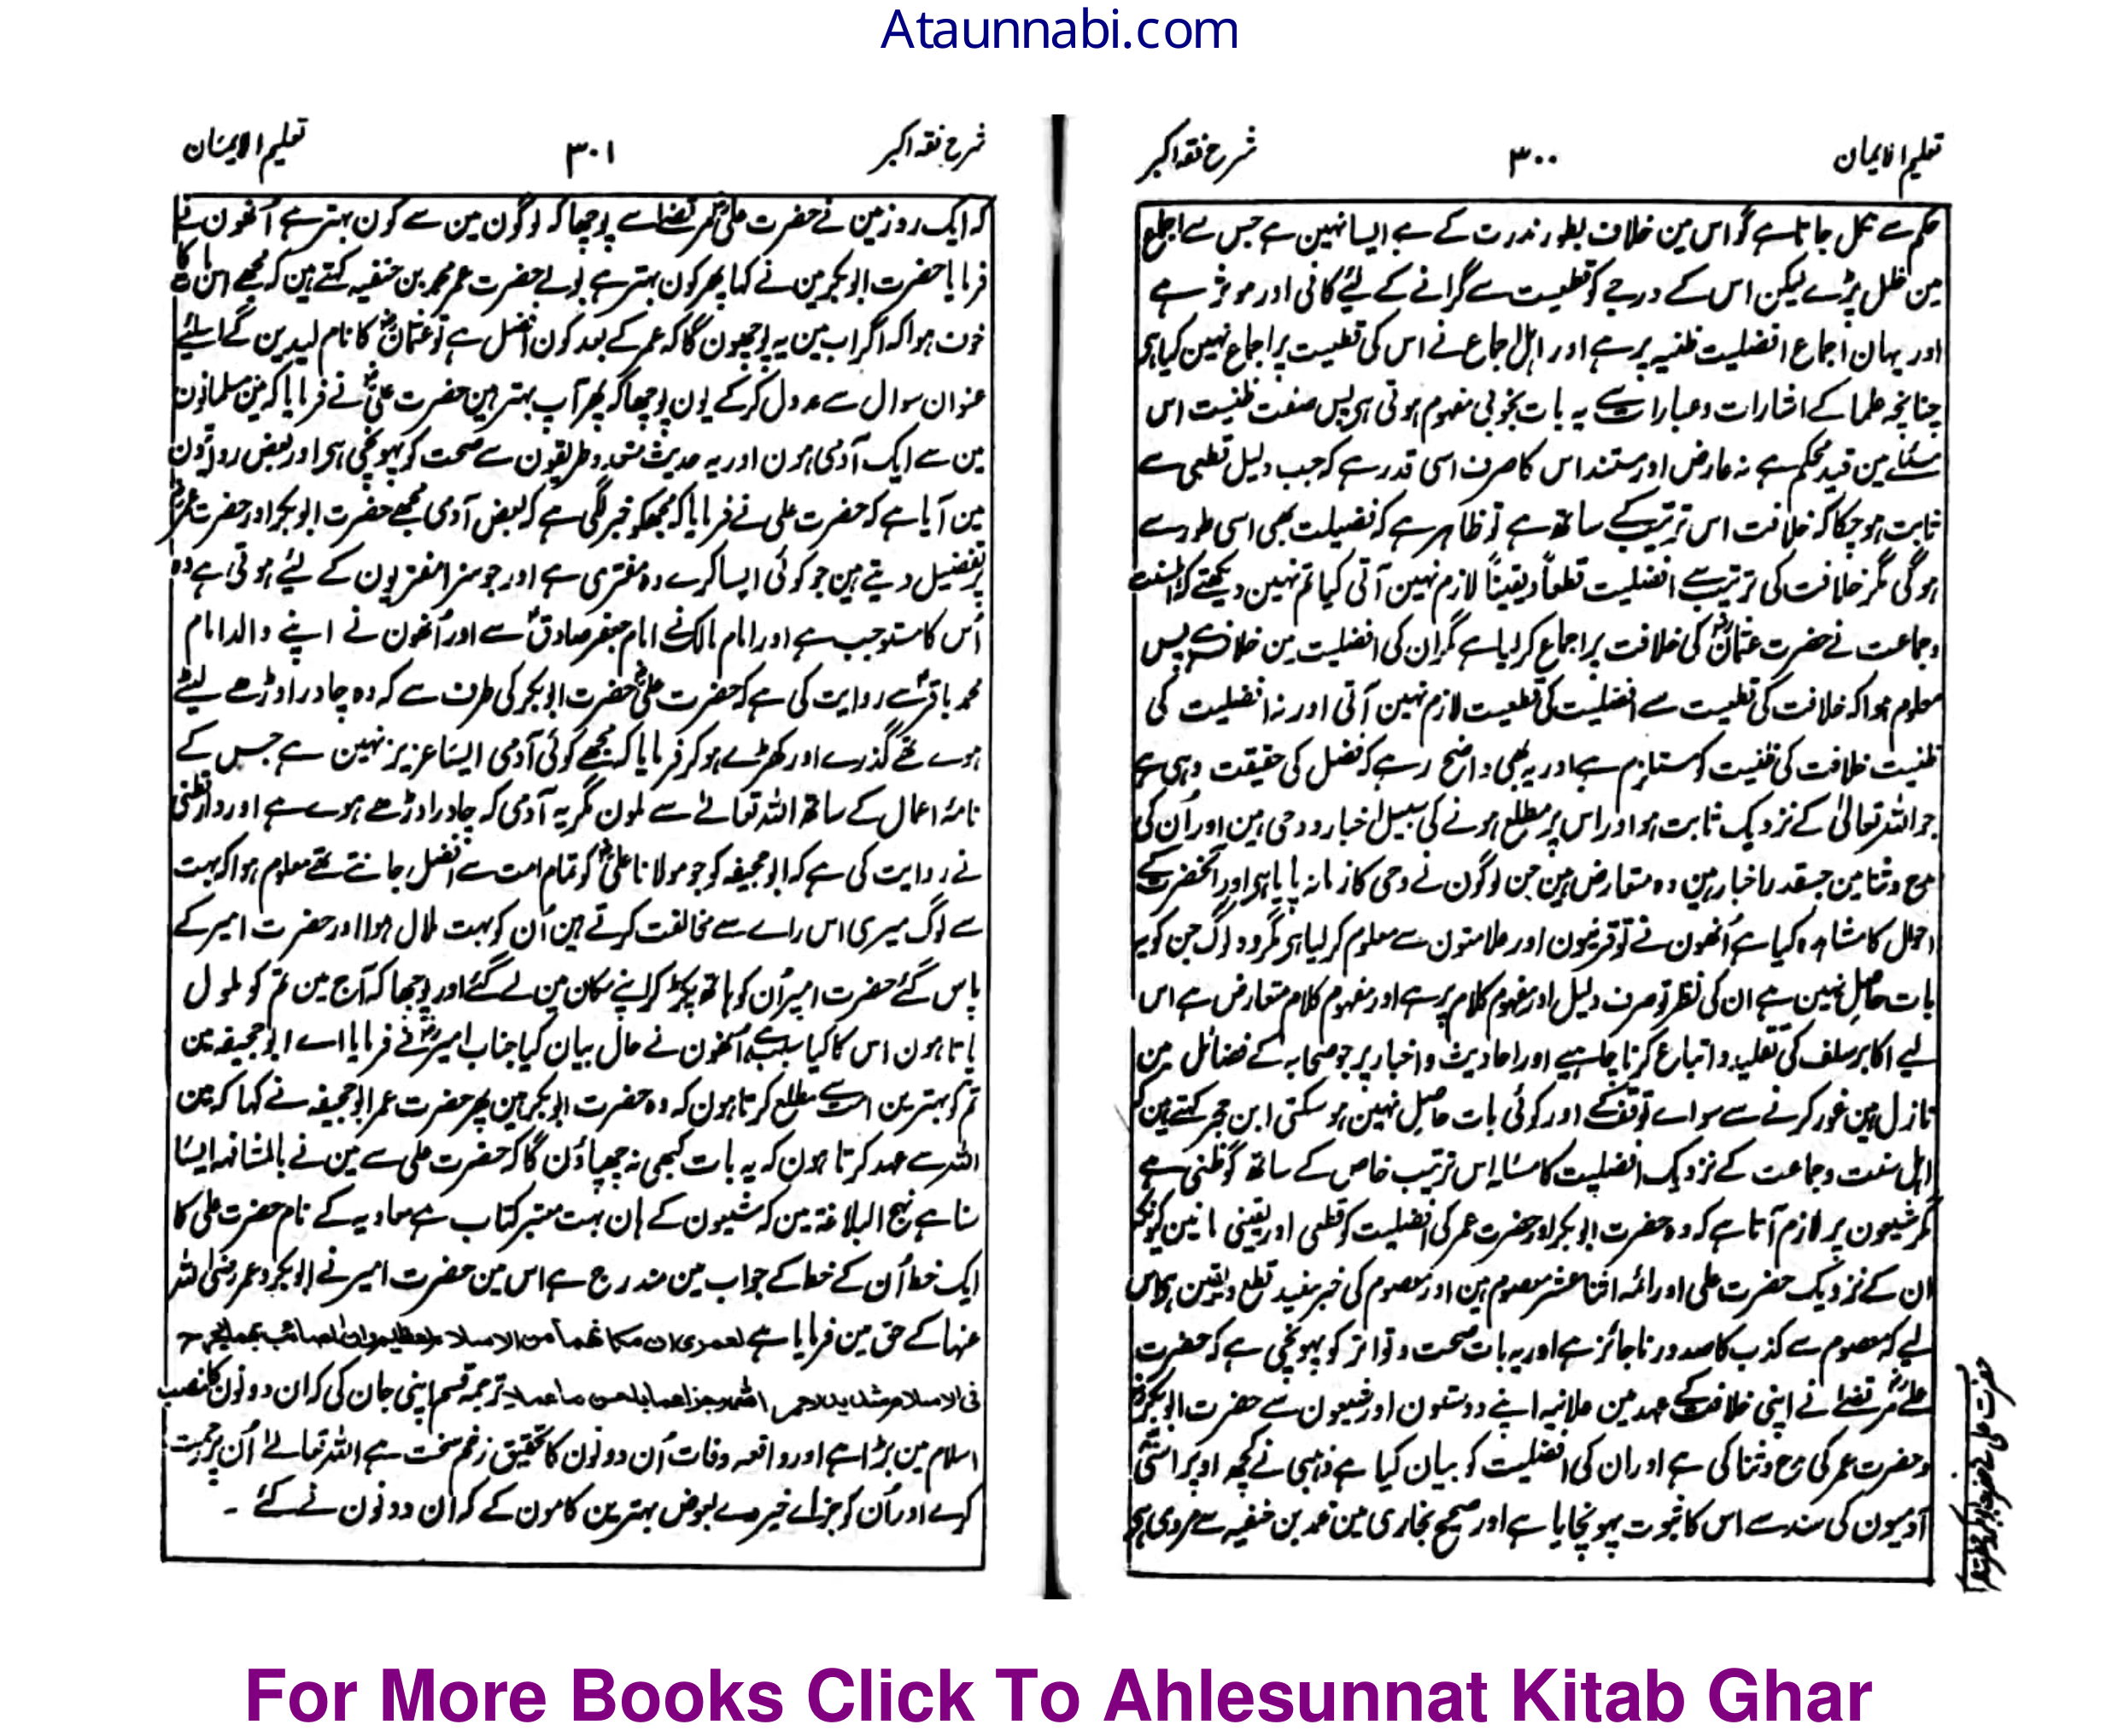 Ataunnabi.com
تعلیم الایمان ۳۰۰ شرح فقہ اکبر
حکم سے نکل جاتا ہے گو اس مین خلاف بطور ندرت کے ہے ایسا نہین ہے جس سے اجماع
مین خلل پڑے لیکن اس کے درجے کو قطعیت سے گرانے کے لئے کافی اور موثر ہے
اور یہان اجماع افضلیت ظنیہ پر ہے اور اہل اجماع نے اس کی قطعیت پر اجماع نہین کیا ہی
چنانچہ علما کے اشارات و عبارات سے یہ بات بخوبی مفہوم ہوتی ہی پس صفت ظنیت اس
مسئلے مین قید محکم ہے نہ عارض اور مستند اس کا صرف اسی قدر ہے کہ جب دلیل قطعی سے
ثابت ہو چکا کہ خلافت اس ترتیب کے ساتھ ہے تو ظاہر ہے کہ فضیلت بھی اسی طور سے
ہو گی مگر خلافت کی ترتیب سے افضلیت قطعاً و یقیناً لازم نہین آتی کیا تم نہین دیکھتے کہ اہلسنت
و جماعت نے حضرت عثمانؓ کی خلافت پر اجماع کر لیا ہے مگر ان کی افضلیت مین خلاف ہے پس
معلوم ہوا کہ خلافت کی قطعیت سے افضلیت کی قطعیت لازم نہین آتی اور نہ افضلیت کی
ظنیت خلافت کی ظنیت کو مستلزم ہے اور یہ بھی واضح رہے کہ فضل کی حقیقت وہی ہے
جو اللہ تعالیٰ کے نزدیک ثابت ہو اور اس پر مطلع ہونے کی سبیل اخبار و وحی ہین اور اُن کی
مدح و ثنا مین جسقدر اخبار ہین وہ متعارض ہین جن لوگون نے وحی کا زمانہ پایا ہی اور آنحضرت کے
احوال کا مشاہدہ کیا ہے اُنھون نے تو قرینون اور علامتون سے معلوم کر لیا ہی مگر وہ لوگ جن کو یہ
بات حاصل نہین ہے ان کی نظر تو صرف دلیل اور مفہوم کلام پر ہے اور مفہوم کلام متعارض ہے اس
لیے اکابر سلف کی تقلید و اتباع کرنا چاہیے اور احادیث و اخبار پر جو صحابہ کے فضائل مین
نازل ہین غور کرنے سے سواے توقف کے اور کوئی بات حاصل نہین ہو سکتی ابن حجر کہتے ہین کہ
اہل سنت و جماعت کے نزدیک افضلیت کا مسئلہ اس ترتیب خاص کے ساتھ گو ظنی ہے
مگر شیعون پر لازم آتا ہے کہ وہ حضرت ابوبکر اور حضرت عمر کی افضلیت کو قطعی اور یقینی مانین کیونکہ
ان کے نزدیک حضرت علی اور ائمہ اثنا عشر معصوم ہین اور معصوم کی خبر مفید قطع و یقین ہی اس
لیے کہ معصوم سے کذب کا صدور ناجائز ہے اور یہ بات صحت و تواتر کو پہونچی ہے کہ حضرت
علی مرتضےٰ نے اپنی خلافت کے عہد مین علانیہ اپنے دوستون اور شیعون سے حضرت ابوبکرؓ
و حضرت عمر کی مدح و ثنا کی ہے اور ان کی افضلیت کو بیان کیا ہے ذہبی نے کچھ اوپر اسّی
آدمیون کی سند سے اس کا ثبوت پہونچایا ہے اور صحیح بخاری مین محمد بن حنفیہ سے مروی ہی
شرح فقہ اکبر ۳۰۱ تعلیم الایمان
کہ ایک روز مین نے حضرت علی مرتضےٰ سے پوچھا کہ لوگون مین سے کون بہتر ہے اُنھون نے
فرمایا حضرت ابوبکر مین نے کہا پھر کون بہتر ہے بولے حضرت عمر محمد بن حنفیہ کہتے ہین کہ مجھے اس بات کا
خوف ہوا کہ اگر اب مین یہ پوچھون گا کہ عمر کے بعد کون افضل ہے تو عثمانؓ کا نام لیدین گے اسلیے
عنوان سوال سے عدول کر کے یون پوچھا کہ پھر آپ بہتر ہین حضرت علیؓ نے فرمایا کہ مین مسلمانون
مین سے ایک آدمی ہون اور یہ حدیث متعدد طریقون سے صحت کو پہونچی ہی اور بعض روایتون
مین آیا ہے کہ حضرت علی نے فرمایا کہ مجھکو خبر لگی ہے کہ بعض آدمی مجھے حضرت ابوبکر اور حضرت عمرؓ
پر تفضیل دیتے ہین جو کوئی ایسا کرے وہ مفتری ہے اور جو سزا مفتریون کے لئے ہوتی ہے وہ
اُس کا مستوجب ہے اور امام مالک نے امام جعفر صادقؑ سے اور اُنھون نے اپنے والد امام
محمد باقرؑ سے روایت کی ہے کہ حضرت علیؓ حضرت ابوبکر کی طرف سے کہ وہ چادر اوڑھے لیٹے
ہوے تھے گذرے اور کھڑے ہو کر فرمایا کہ مجھے کوئی آدمی ایسا عزیز نہین ہے جس کے
نامۂ اعمال کے ساتھ اللہ تعالےٰ سے ملون مگر یہ آدمی کہ چادر اوڑھے ہوے ہے اور دارقطنی
نے روایت کی ہے کہ ابو جحیفہ کو جو مولانا علیؓ کو تمام امت سے افضل جانتے تھے معلوم ہوا کہ بہت
سے لوگ میری اس راے سے مخالفت کرتے ہین اُن کو بہت ملال ہوا اور حضرت امیر کے
پاس گئے حضرت امیر اُن کو ہاتھ پکڑ کر اپنے مکان مین لے گئے اور پوچھا کہ آج مین تم کو ملول
پاتا ہون اس کا کیا سبب ہے اُنھون نے حال بیان کیا جناب امیرؓ نے فرمایا اے ابو جحیفہ مین
تم کو بہترین امت سے مطلع کرتا ہون کہ وہ حضرت ابوبکر ہین پھر حضرت عمر ابو جحیفہ نے کہا کہ مین
اللہ سے عہد کرتا ہون کہ یہ بات کبھی نہ چھپاؤن گا کہ حضرت علی سے مین نے بالمشافہہ ایسا
سنا ہے نہج البلاغۃ مین کہ شیعون کے ہان بہت معتبر کتاب ہے معاویہ کے نام حضرت علی کا
ایک خط اُن کے خط کے جواب مین مندرج ہے اس مین حضرت امیر نے ابوبکر و عمر رضی اللہ
عنہا کے حق مین فرمایا ہے لعمری ان مکانھما من الاسلام لعظیم وان المصائب بھما لجرح
فی الاسلام شدید یرحمھما اللہ وجزاھما باحسن ما عملا ترجمہ قسم اپنی جان کی کہ ان دونون کا منصب
اسلام مین بڑا ہے اور واقعہ وفات اُن دونون کا تحقیق زخم سخت ہے اللہ تعالےٰ اُن پر رحمت
کرے اور اُن کو جزاے خیر دے بعوض بہترین کامون کے کہ ان دونون نے کئے ۔
For More Books Click To Ahlesunnat Kitab Ghar